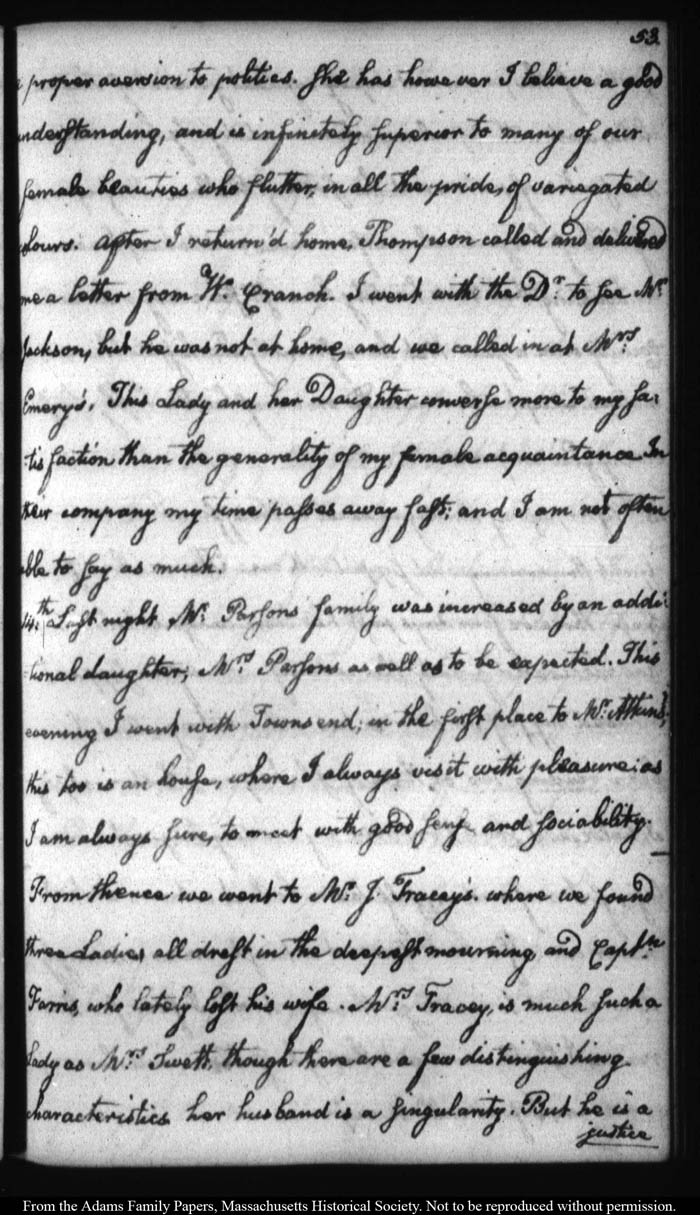 53
proper aversion to politics. She has however I believe a good
understanding, and is infinitely superior to many of our
female beauties who flutter, in all the pride, of variegated
colours. After I return'd home, Thompson called and delivered
me a letter from W. Cranch. I went with the Dr. to see Mr.
Jackson, but he was not at home, and we called in at Mrs.
Emery's. This Lady and her Daughter converse more to my sa-
-tisfaction than the generality of my female acquaintance. In
their company my time passes away fast; and I am not often
able to say as much.
14.th Last night Mr. Parsons family was increased by an addi-
-tional daughter; Mrs. Parsons as well as to be expected. This
evening I went with Townsend; in the first place to Mr. Atkins's;
this too is an house, where I always visit with pleasure: as
I am always sure, to meet with good sense and sociability.
From thence we went to Mr. J. Tracey's. where we found
three Ladies all drest in the deepest mourning, and Captn.
Farris, who lately lost his wife. Mrs. Tracey, is much such a
Lady as Mrs. Swett, though there are a few distinguishing
characteristics her husband is a singularity. But he is a
justice
From the Adams Family Papers, Massachusetts Historical Society. Not to be reproduced without permission.